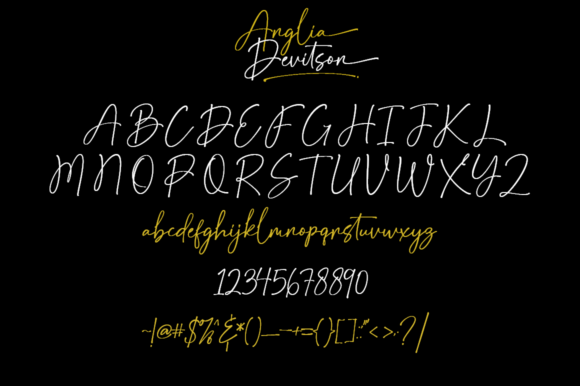 Anglia
Devitson
ABCDEFGHIJKL
MNOPQRSTUVWXYZ
abcdefghijklmnopqrstuvwxyz
12345678890
~!@#$%^&*()_-+={}[]:;"'<>,.?/